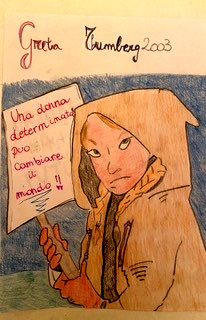 Greta Trumberg 2003
Una donna
determinata
può
cambiare
il
mondo !!